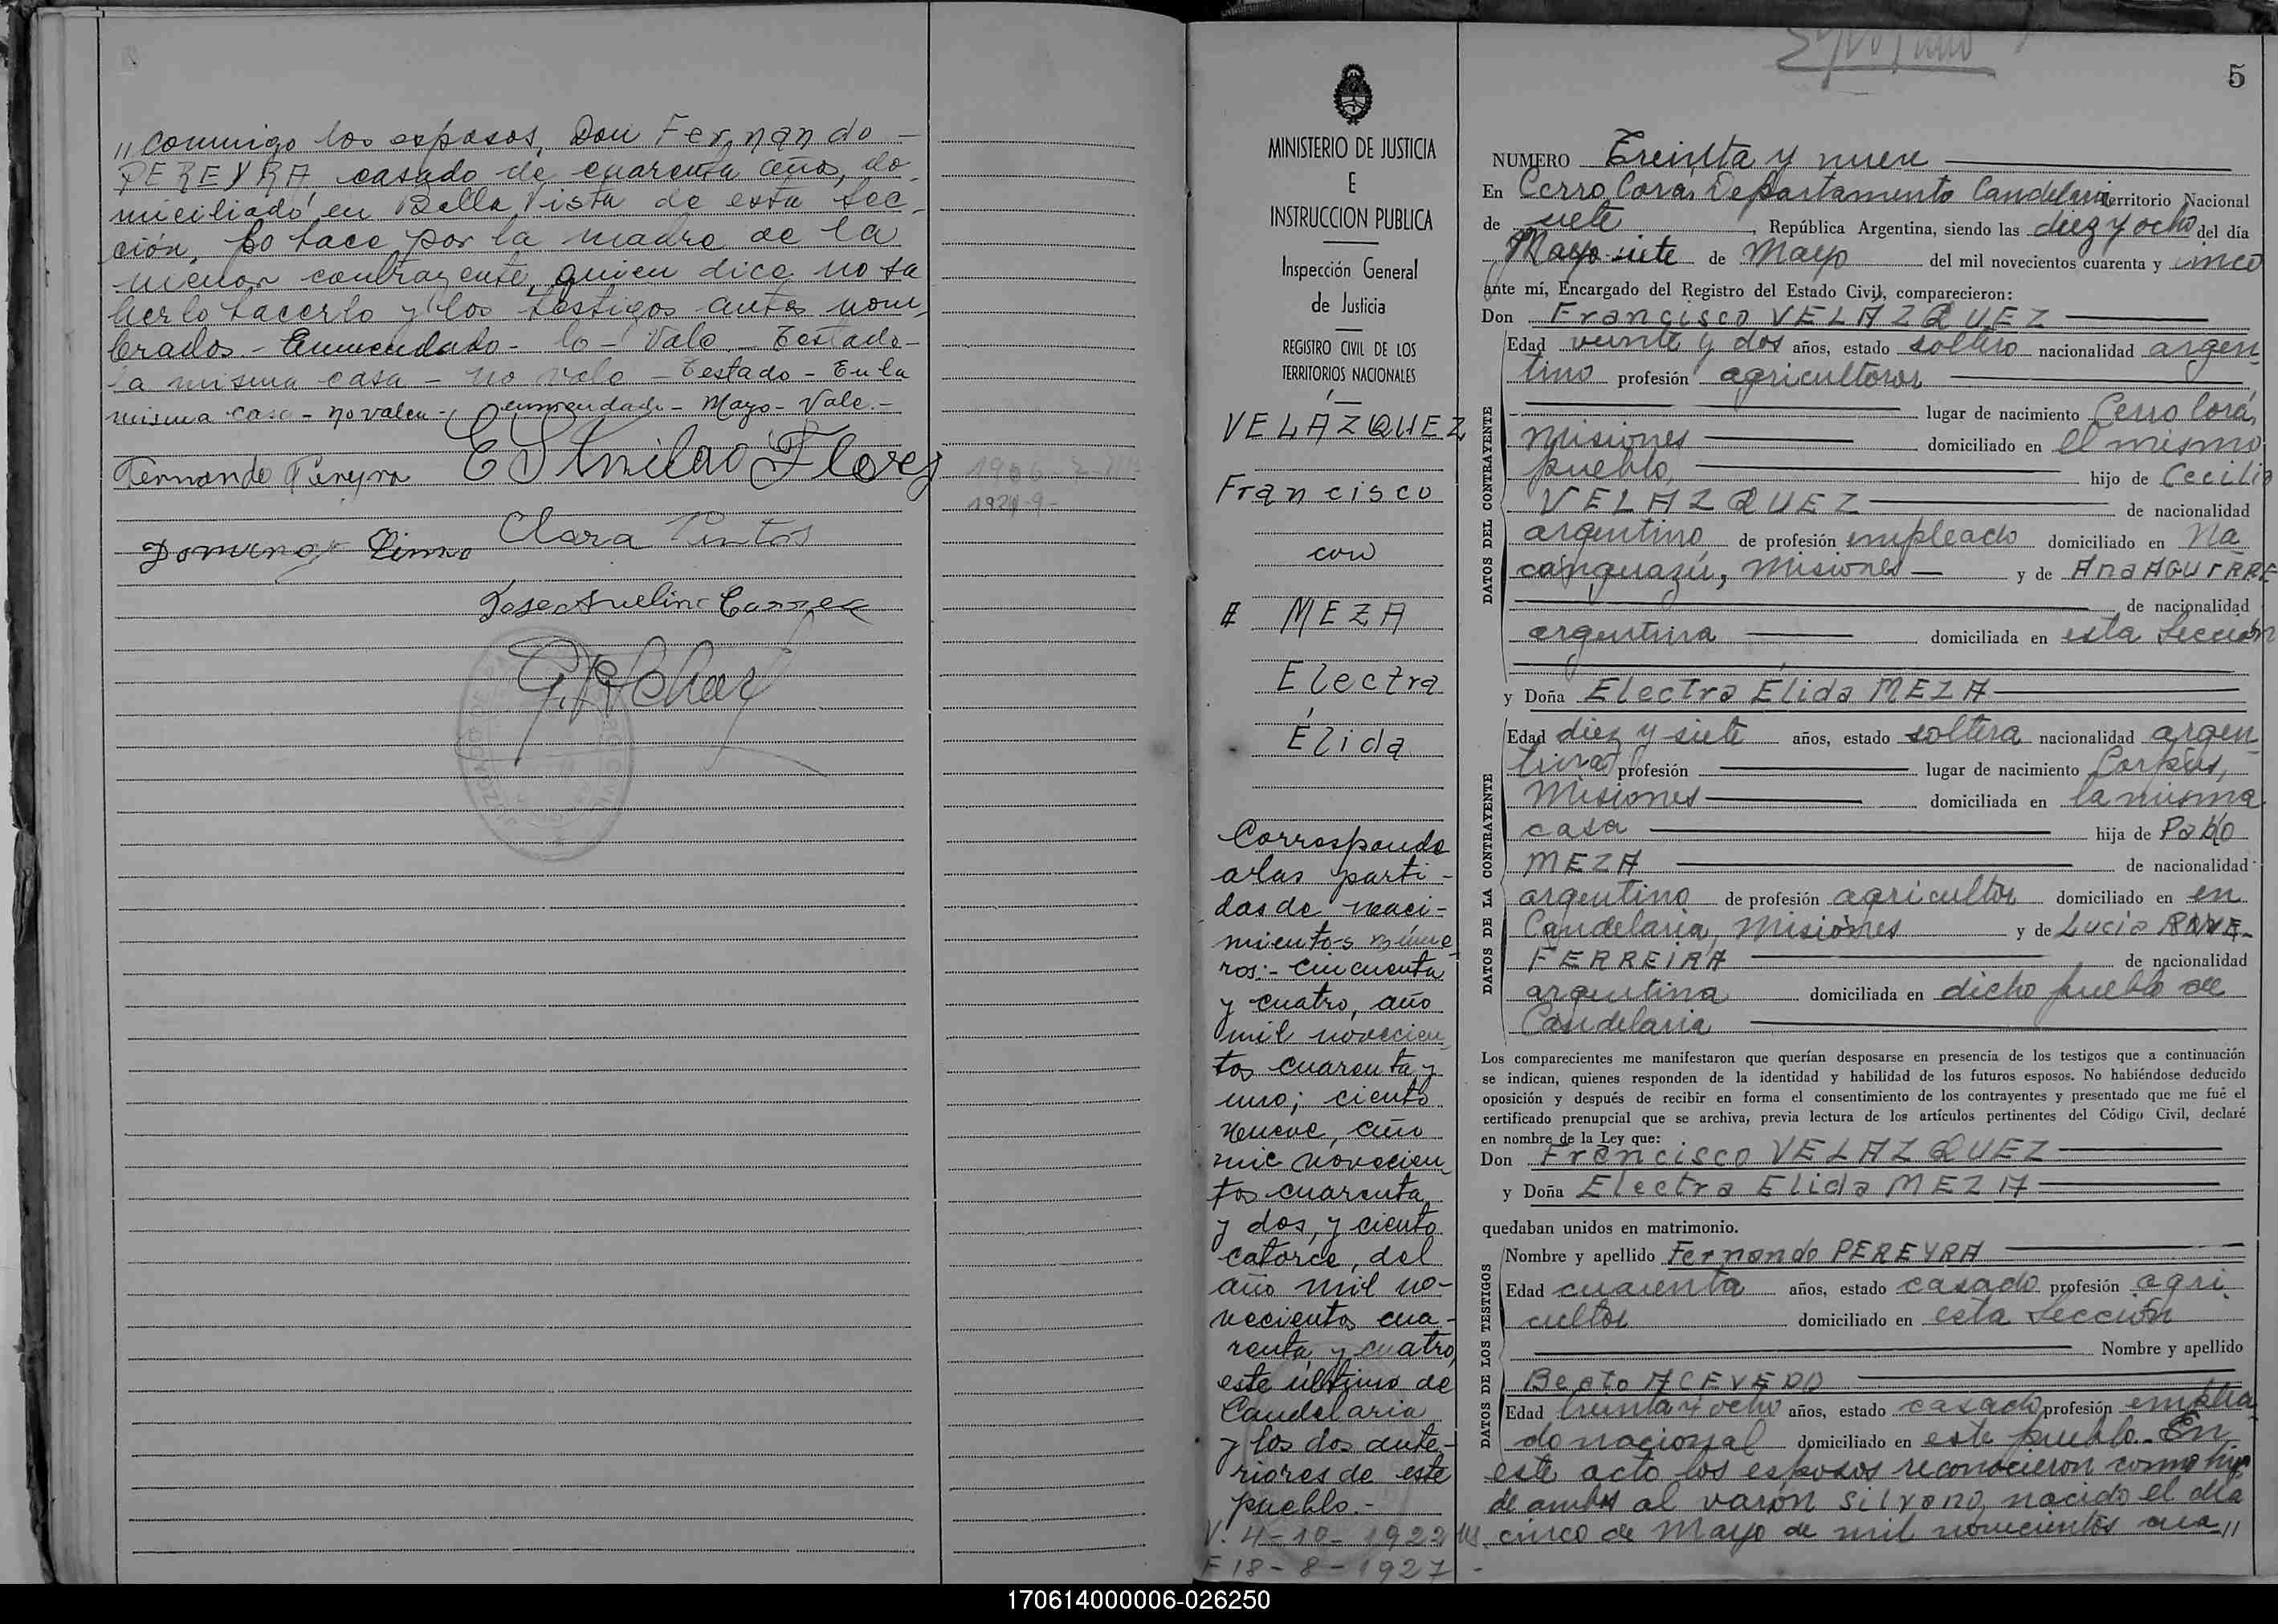 ,, conmigo los esposos, Don Fernando –
PEREYRA, casado de cuarenta años, do-
miciliado en Bella Vista de esta Sec-
ción, lo hace por la madre de la
menor contrayente, quien dice no sa
berlo hacerlo y los testigos antes nom-
brados.- Enmendado - lo - Vale - Testado -
La misma casa - no vale - Testado - En la
misma casa - no valen -, enmendado - Mayo - Vale.-
Fernando Pereyra Flores
1924-9-
Clara Pintos
Domingo
5
MINISTERIO DE JUSTICIA
E
INSTRUCCION PUBLICA
Inspección General
de Justicia
REGISTRO CIVIL DE LOS
TERRITORIOS NACIONALES
VELAZQUEZ
Francisco
con
MEZA
Electra
Élida
Corresponde
a las parti-
das de naci-
mientos núme
ros:- cincuenta
y cuatro, año
mil novecien
tos cuarenta y
uno; ciento
nueve, año
mil novecien
tos cuarenta
y dos, y ciento
catorce, del
año mil no-
vecientos cua-
renta y cuatro,
este último de
Candelaria
y los dos ante-
riores de este
pueblo.-
V. 4-10-1922
F 18-8-1927
NUMERO Treinta y nueve
En Cerro Corá, Departamento Candelaria Territorio Nacional
de siete, República Argentina, siendo las diez y ocho del día
Mayo siete de Mayo del mil novecientos cuarenta y cinco
ante mí, Encargado del Registro del Estado Civil, comparecieron:
Don Francisco VELÁZQUEZ
DATOS DEL CONTRAYENTE
Edad veinte y dos años, estado soltero nacionalidad argen-
tino profesión agricultor
lugar de nacimiento Cerro Corá,
Misiones domiciliado en el mismo
pueblo, hijo de Cecilio
VELAZQUEZ de nacionalidad
argentino de profesión empleado domiciliado en Ña
canguazú, Misiones y de Ana AGUIRRE
de nacionalidad
argentina domiciliada en esta Sección
y Doña Electra Élida MEZA
DATOS DE LA CONTRAYENTE
Edad diez y siete años, estado soltera nacionalidad argen-
tina profesión lugar de nacimiento Corpus,
Misiones domiciliada en la misma
casa hija de Pablo
MEZA de nacionalidad
argentino de profesión agricultor domiciliado en en
Candelaria, Misiones y de Lucia
FERREIRA de nacionalidad
argentina domiciliada en dicho pueblo de
Candelaria
Los comparecientes me manifestaron que querían desposarse en presencia de los testigos que a continuación
se indican, quienes responden de la identidad y habilidad de los futuros esposos. No habiéndose deducido
oposición y después de recibir en forma el consentimiento de los contrayentes y presentado que me fué el
certificado prenupcial que se archiva, previa lectura de los artículos pertinentes del Código Civil, declaré
en nombre de la Ley que:
Don Francisco VELAZQUEZ
y Doña Electra Elida MEZA
quedaban unidos en matrimonio.
DATOS DE LOS TESTIGOS
Nombre y apellido Fernando PEREYRA
Edad cuarenta años, estado casado profesión agri
cultor domiciliado en esta Sección
Nombre y apellido
ACEVEDO
Edad treinta y ocho años, estado casado profesión emplea
do nacional domiciliado en este pueblo.- En
este acto los esposos reconocieron como hijo
de ambos al varón Silvano, nacido el día
cinco de Mayo de mil novecientos cua,,
170614000006-026250